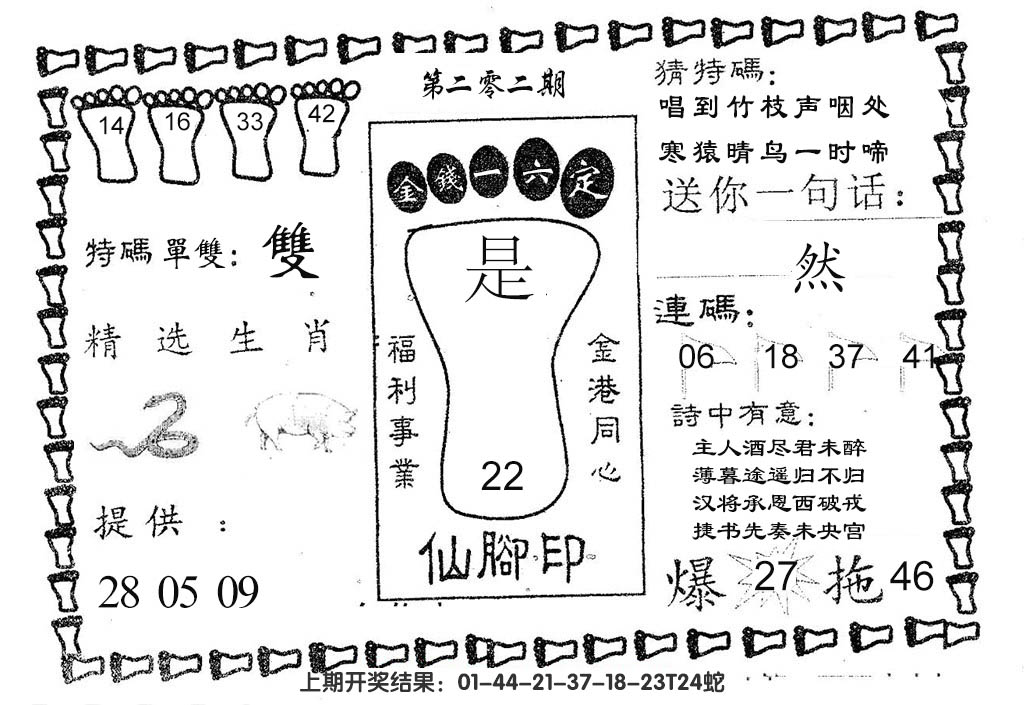 第二零二期
14 16 33 42
特碼單雙：雙
精选生肖
提供：
28 05 09
金錢一六定
是
福利事業
金港同心
22
仙腳印
猜特碼：
唱到竹枝声咽处
寒猿晴鸟一时啼
送你一句话：
然
連碼：
06 18 37 41
詩中有意：
主人酒尽君未醉
薄暮途遥归不归
汉将承恩西破戎
捷书先奏未央宫
爆 27 拖 46
上期开奖结果：01-44-21-37-18-23T24蛇